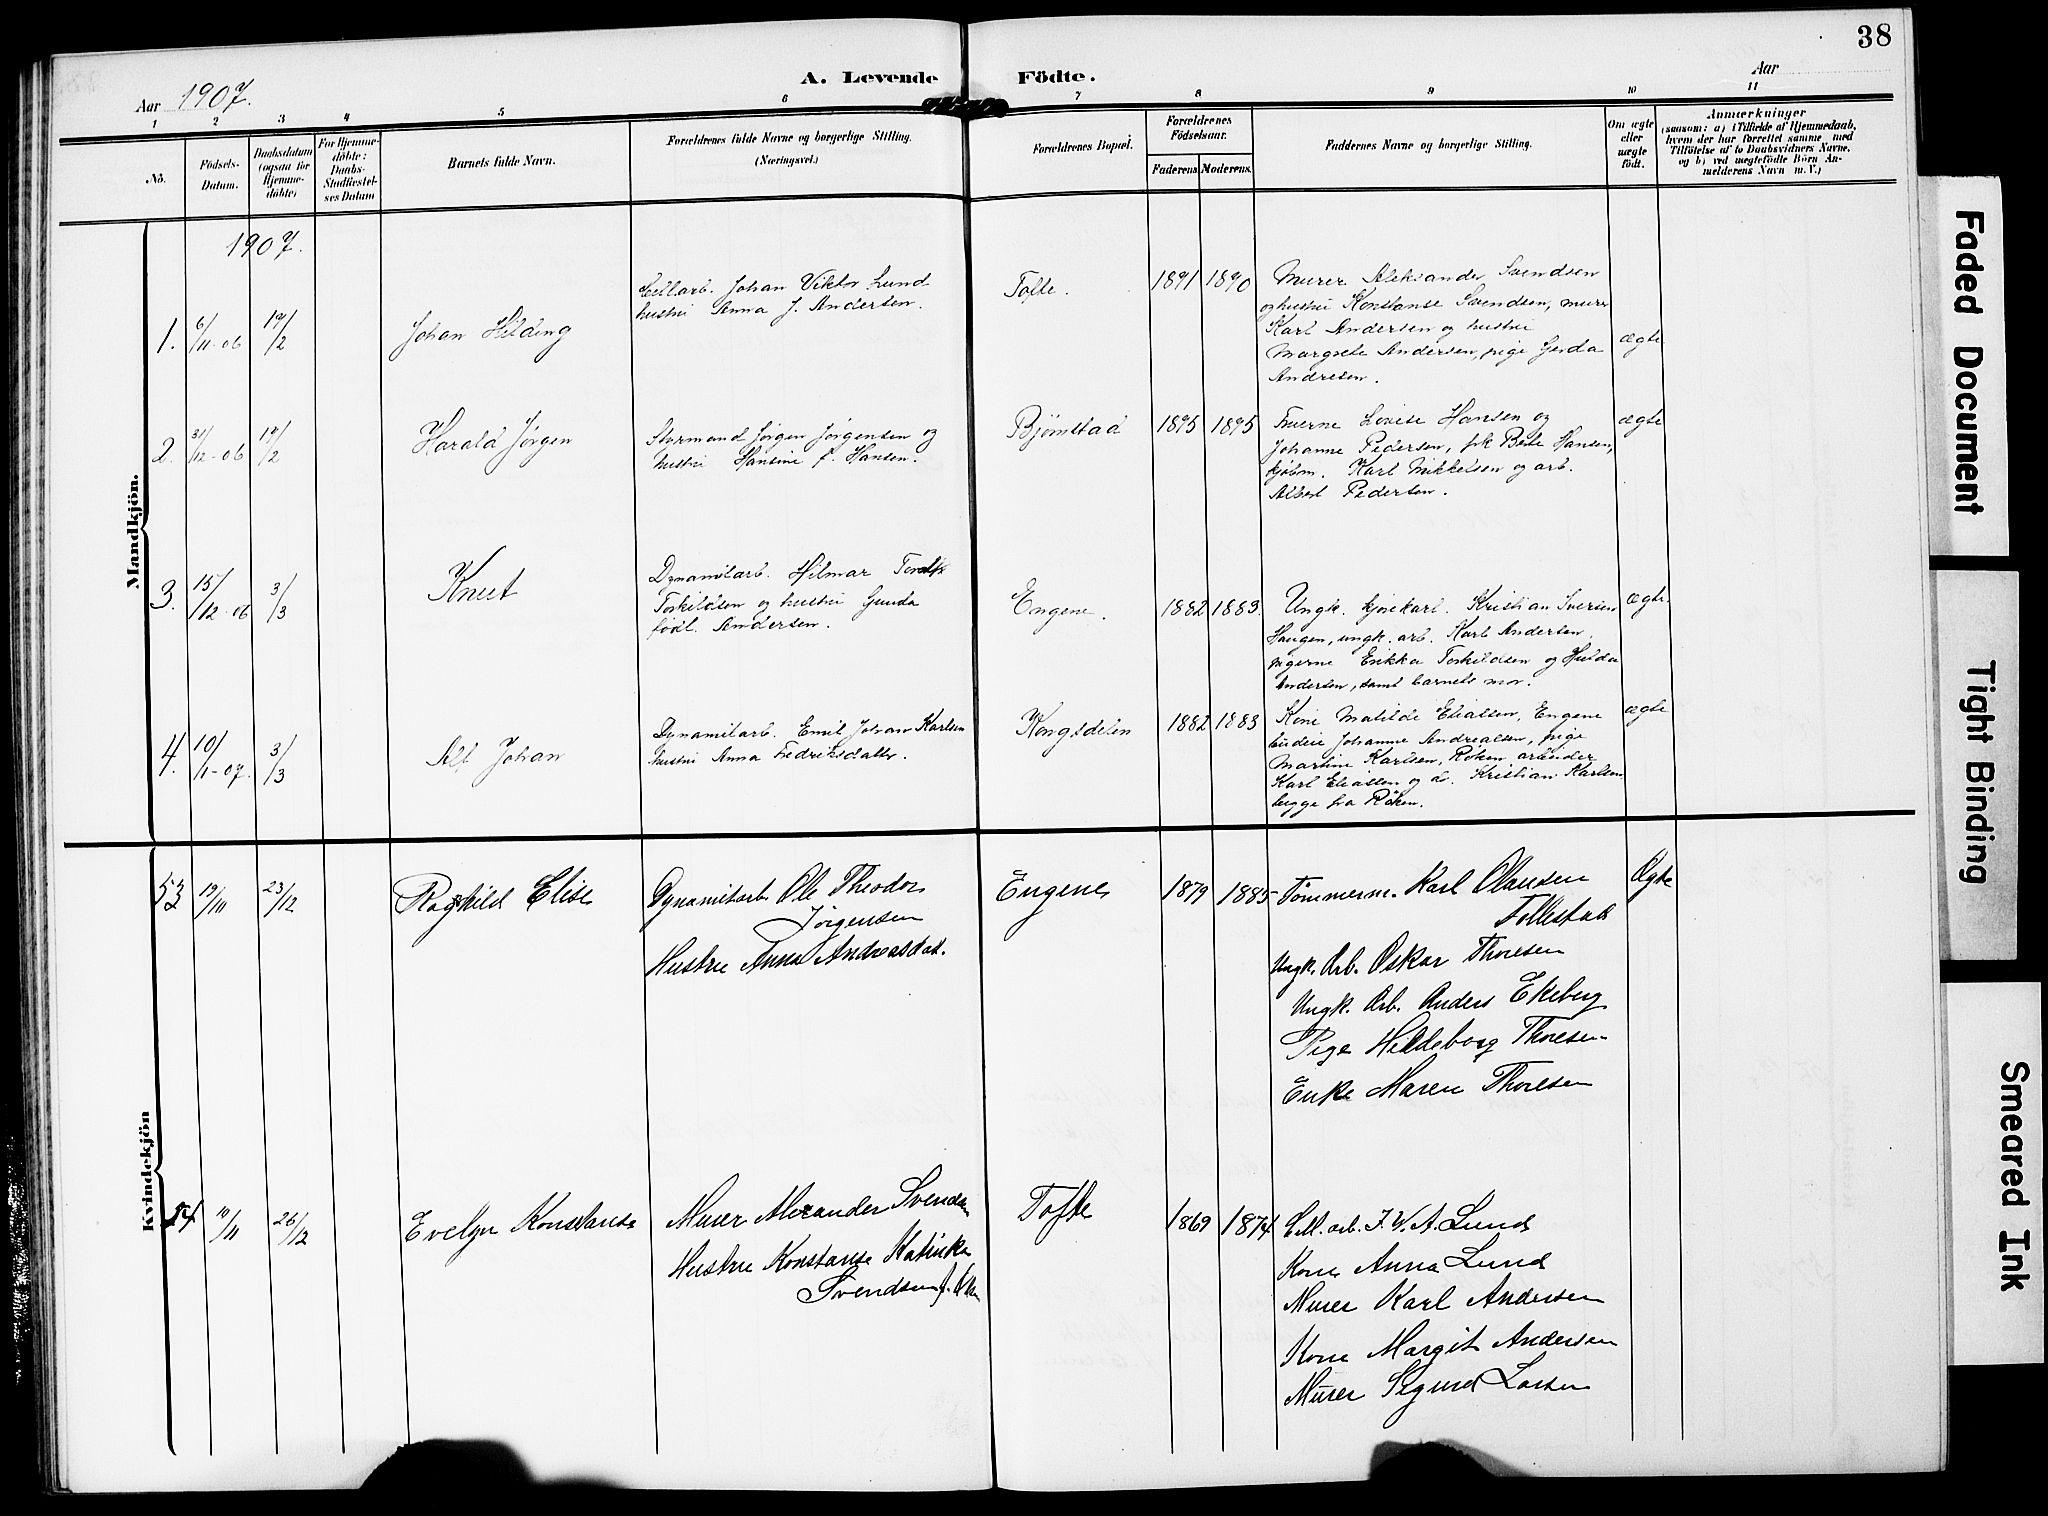 38
A. Levende Födte.
Aar 1907.
Aar
1 2 3 4 5 6 7 8 9 10 11
No.
Födsels-
Datum.
Daabsdatum
(ogsaa for
Hjemme-
døbte)
For Hjemme-
døbte:
Daabs-
Stadfæstel-
ses Datum
Barnets fulde Navn.
Forældrenes fulde Navne og borgerlige Stilling.
(Næringsvei.)
Forældrenes Bopæl.
Forældrenes
Födselsaar.
Faderens Moderens.
Faddernes Navne og borgerlige Stilling.
Om ægte
eller
uægte
födt.
Anmærkninger
(saasom: a) i Tilfælde af Hjemmedaab,
hvem der har forrettet samme med
Tilföielse af to Daabsvidners Navne,
og b) ved uægtefödte Börn An-
melderens Navn m. V.)
Mandkjön.
1907.
1. 6/11-06 17/2
Johan Hilding
Cellarb. Johan Viktor Lund
hustru Anna J. Andersen.
Tofte.
Murer Aleksander Svendsen
og hustru Konstanse Svendsen, murer
Karl Andersen og hustru
Margrete Andersen, pige Gerda
Andresen.
ægte
2. 31/12-06 17/2
Harald Jørgen
Styrmand Jørgen Jørgensen og
hustru Hansine f. Hansen.
Bjørnstad
Fruerne Lovise Hansen og
Johanne Pedersen, frk Hansen,
kjøbm. Karl Mikkelsen og arb.
Albert Pedersen.
ægte
3. 15/12-06 3/3
Knut
Dynamitarb. Hilmar
Torkildsen og hustru Gunda
født Andersen.
Engene.
1882 1883.
Ungk. kjørekarl. Kristian
Haugen, ungk. arb. Karl Andersen,
pigerne Erikka Torkildsen og Hulda
Andersen, samt barnets mor.
ægte
4. 10/1-07. 3/3
Alf Johan
Dynamitarb. Emil Johan Karlsen
hustru Anna Fredriksdatter.
Kongsdelen
1882 1883
Kone Matilde Eliassen, Engene
budeie Johanne Andreasen, pige
Martine Karlsen, Røken arbeider
Karl Eliassen og d. Kristian Karlsen
begge fra Røken.
ægte
Kvindekjön
53 19/10 23/12
Ragnhild Elise
Dynamitarb. Ole Theodor
Jörgensen
Hustru Anna Andreasdatt.
Engene
1879 1885
Tömmerm. Karl Olausen
Tollestad
Ungk. Arb. Oskar Thoresen
Ungk. Arb. Anders Ekeberg
Pige Hildeborg Thoresen
Enke Maren Thoresen
Ægte
54 10/11 26/12
Evelyn Konstanse
Murer Alexander Svendsen
Hustru Konstanse Katinka
Svendsen
Tofte
1869 1874
Cell. arb. J. V. A. Lund
Kone Anna Lund
Murer Karl Andersen
Kone Margit Andersen
Murer Sigurd Larsen
Faded Document
Tight Binding
Smeared Ink